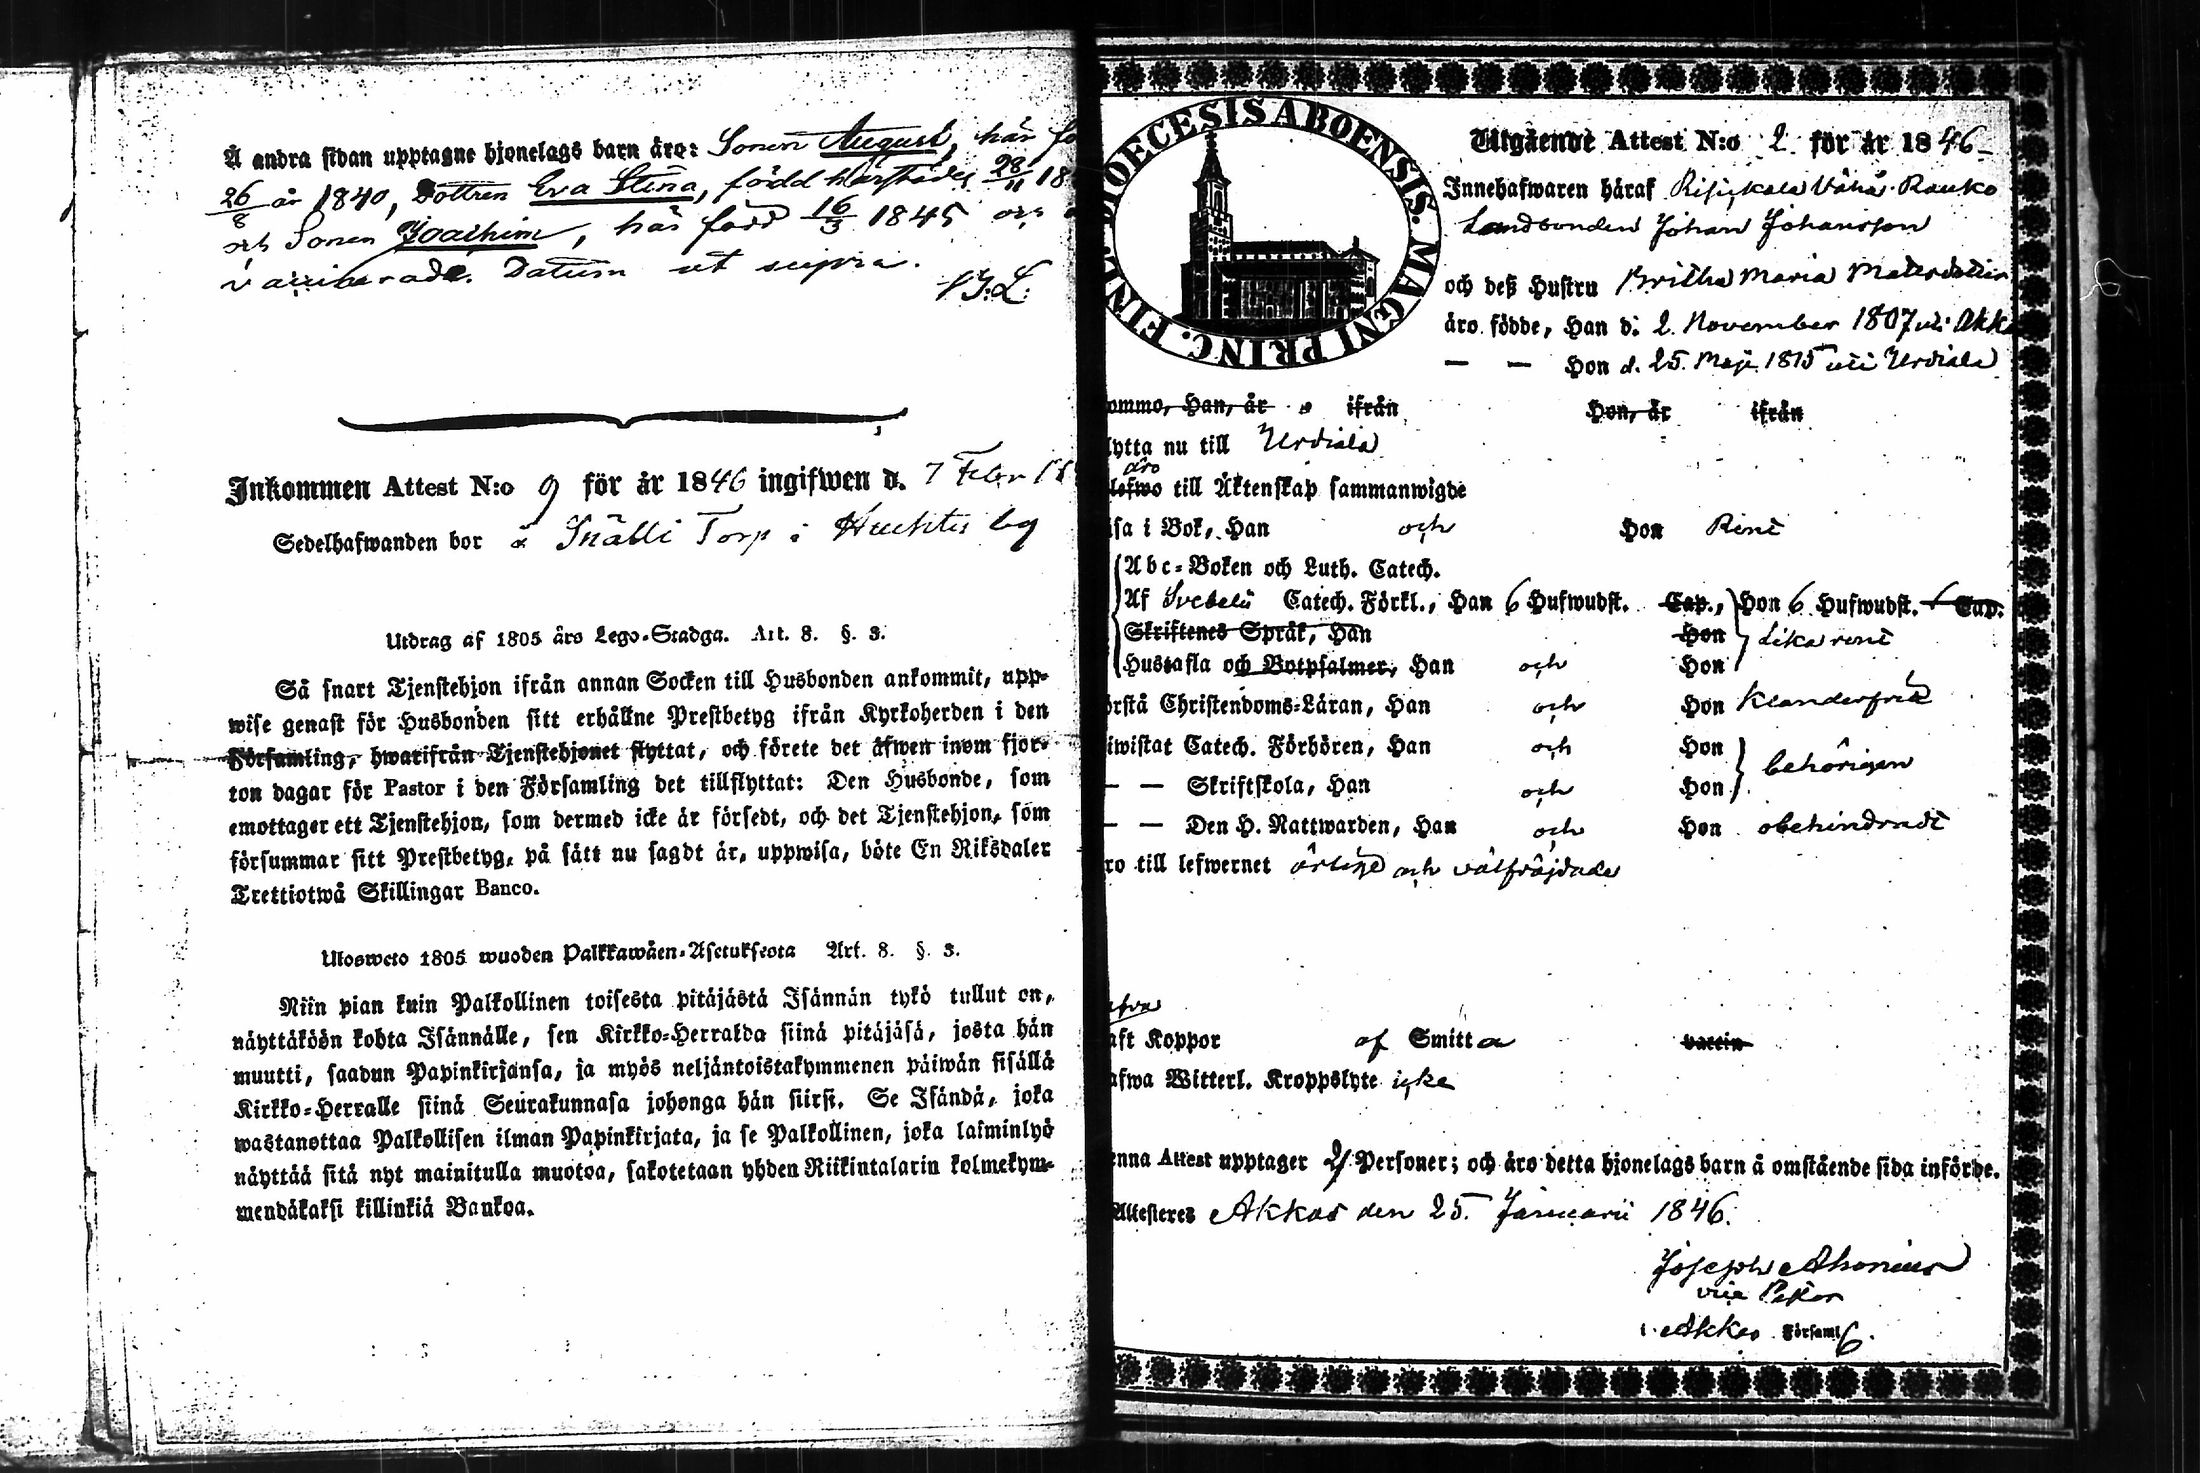 Å andra sidan upptagne hjonelags barn äro: Sonen August, här fö
26/8 år 1840, Dottren Eva Stina, född härstädes 28/11 18
och Sonen Joachim, här född 16/3 1845
vaccinerade. Datum ut supra.
Inkommen Attest N:o 9 för år 1846 ingifwen d. 7 Febr
Sedelhafwanden bor å Snälli Torp i Huhtis by
Utdrag af 1805 års Lego-Stadga. Art. 8. §. 3.
Så snart Tjenstehjon ifrån annan Socken till Husbonden ankommit, upp-
wise genast för Husbonden sitt erhållne Prestbetyg ifrån Kyrkoherden i den
Församling, hwarifrån Tjenstehjonet flyttat, och förete det äfwen inom fjor-
ton dagar för Pastor i den Församling det tillflyttat: Den Husbonde, som
emottager ett Tjenstehjon, som dermed icke är försedt, och det Tjenstehjon, som
försummar sitt Prestbetyg, på sätt nu sagdt är, uppwisa, böte En Riksdaler
Trettiotwå Skillingar Banco.
Ulosweto 1805 wuoden Palkkawäen-Asetuksesta Art. 8. §. 3.
Niin pian kuin Palkollinen toisesta pitäjästä Isännän tykö tullut on,
näyttäköön kohta Isännälle, sen Kirkko-Herralda siinä pitäjäsä, josta hän
muutti, saadun Papinkirjansa, ja myös neljäntoistakymmenen päiwän sisällä
Kirkko-Herralle siinä Seurakunnasa johonga hän siirsi. Se Isändä, joka
wastanottaa Palkollisen ilman Papinkirjata, ja se Palkollinen, joka laiminlyö
näyttää sitä nyt mainitulla muotoa, sakotetaan yhden Riikintalarin kolmekym-
mendäkaksi killinkiä Bankoa.
DIOECESIS ABOENSIS. MAGNI PRINC. FINL.
Utgående Attest N:o 2 för år 1846
Innehafwaren häraf Wähä-Rauko
Landbonden Johan Johansson
och deß Hustru Britha Maria Matsdotter
äro födde, Han d: 2. November 1807 uti Akk
— — Hon d. 25. Maji 1815 uti Urdiala
ommo, Han, år ifrån Hon, år ifrån
lytta nu till Urdiala
äro
lefwo till Äktenskap sammanwigde
äsa i Bok, Han och Hon Rent
Abc-Boken och Luth. Catech.
Af Svebelii Catech. Förkl., Han 6 Hufwudst. Cap., Hon 6 Hufwudst. Cap.
Skriftenes Språk, Han Hon lika rent
Hustafla och Botpsalmer, Han och Hon
örstå Christendoms-Läran, Han och Hon Klanderfritt
iwistat Catech. Förhören, Han och Hon
behörigen
— — Skriftskola, Han och Hon
— — Den H. Nattwarden, Han och Hon obehindradt
ro till lefwernet ärlige och välfräjdade
afva
aft Koppor af Smitta vaccin
afwa Witterl. Kroppslyte icke
enna Attest upptager 2 Personer; och äro detta hjonelags barn å omstående sida införde.
Attesteres Akkas den 25. Januarii 1846.
Joseph
vice Pastor
i Akkas Församl